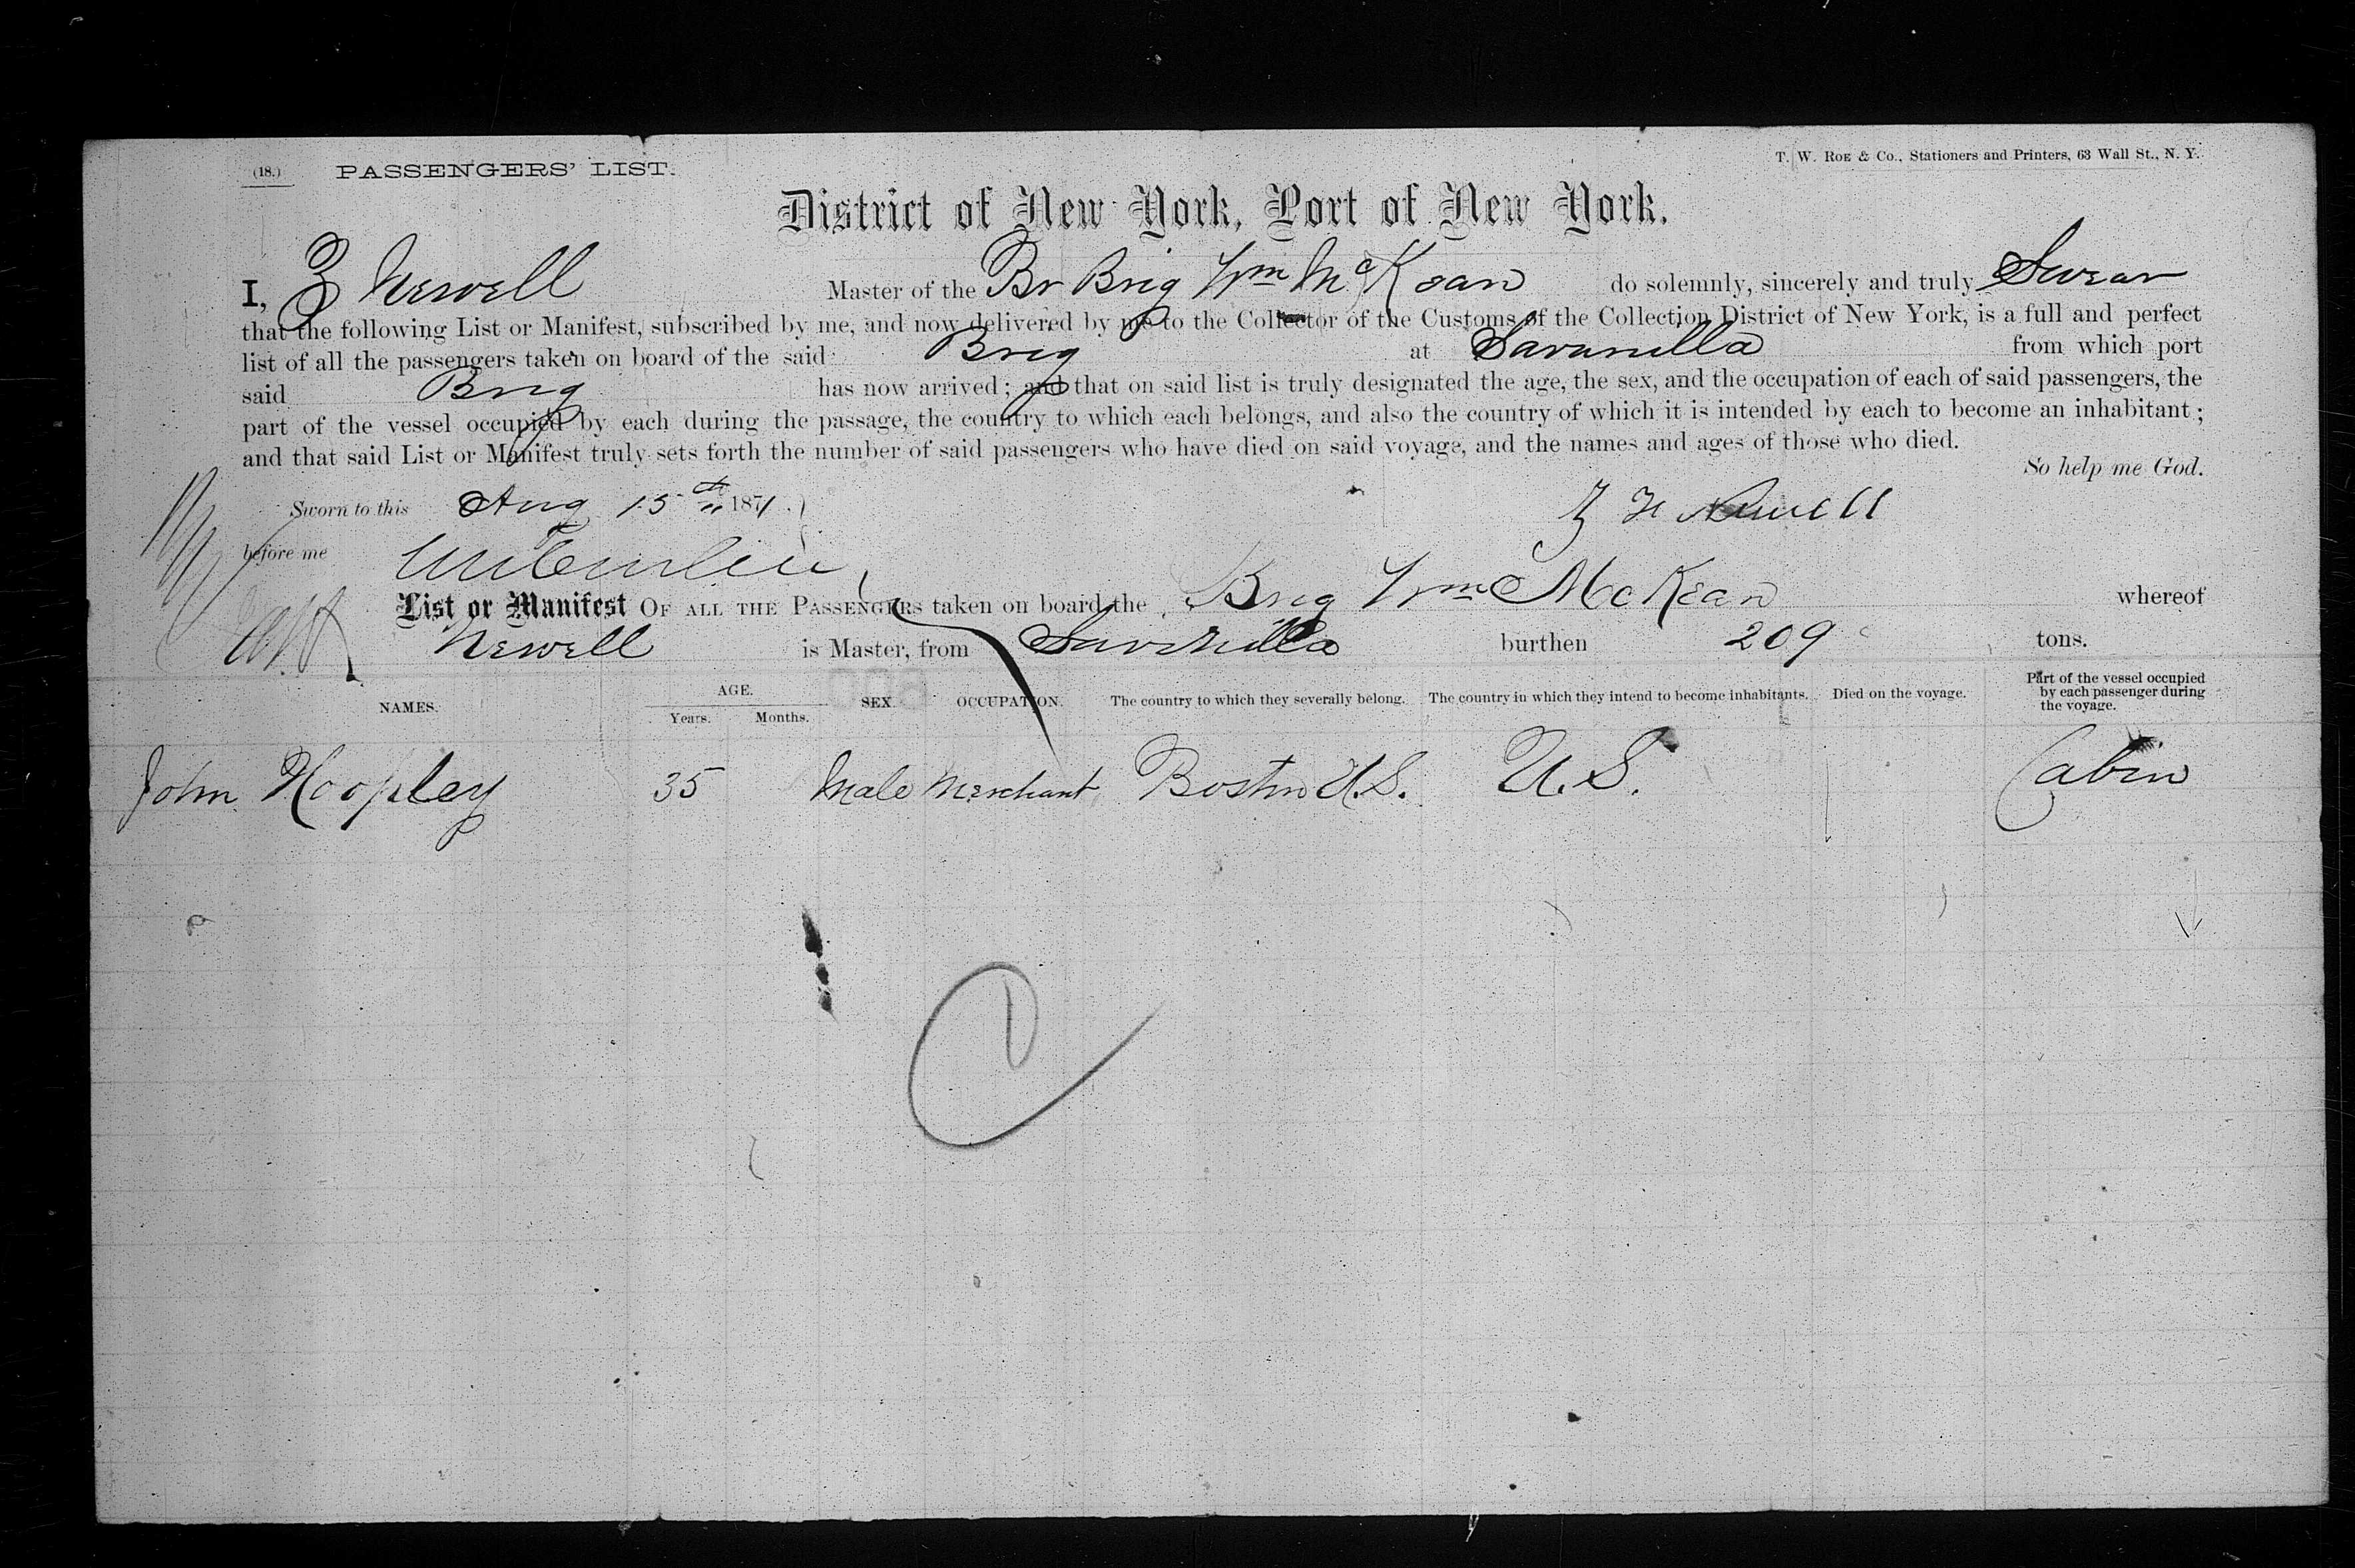 (18.) PASSENGERS' LIST. T. W. Roe & Co., Stationers and Printers, 63 Wall St., N. Y.
District of New York, Port of New York.
I, Z Newell Master of the Br Brig Wm McKean do solemnly, sincerely and truly Swear
that the following List or Manifest, subscribed by me, and now delivered by me to the Collector of the Customs of the Collection District of New York, is a full and perfect
list of all the passengers taken on board of the said Brig at Savanilla from which port
said Brig has now arrived; and that on said list is truly designated the age, the sex, and the occupation of each of said passengers, the
part of the vessel occupied by each during the passage, the country to which each belongs, and also the country of which it is intended by each to become an inhabitant;
and that said List or Manifest truly sets forth the number of said passengers who have died on said voyage, and the names and ages of those who died.
So help me God.
Sworn to this Aug 15th 1871. Z H Newell
before me
List or Manifest OF ALL THE PASSENGERS taken on board the Brig Wm McKean whereof
Newell is Master, from Savanilla burthen 209 tons.
NAMES. AGE. Years. Months. SEX. OCCUPATION. The country to which they severally belong. The country in which they intend to become inhabitants. Died on the voyage. Part of the vessel occupied by each passenger during the voyage.
John Hoopley 35 Male Merchant Boston U.S. U.S. Cabin
1